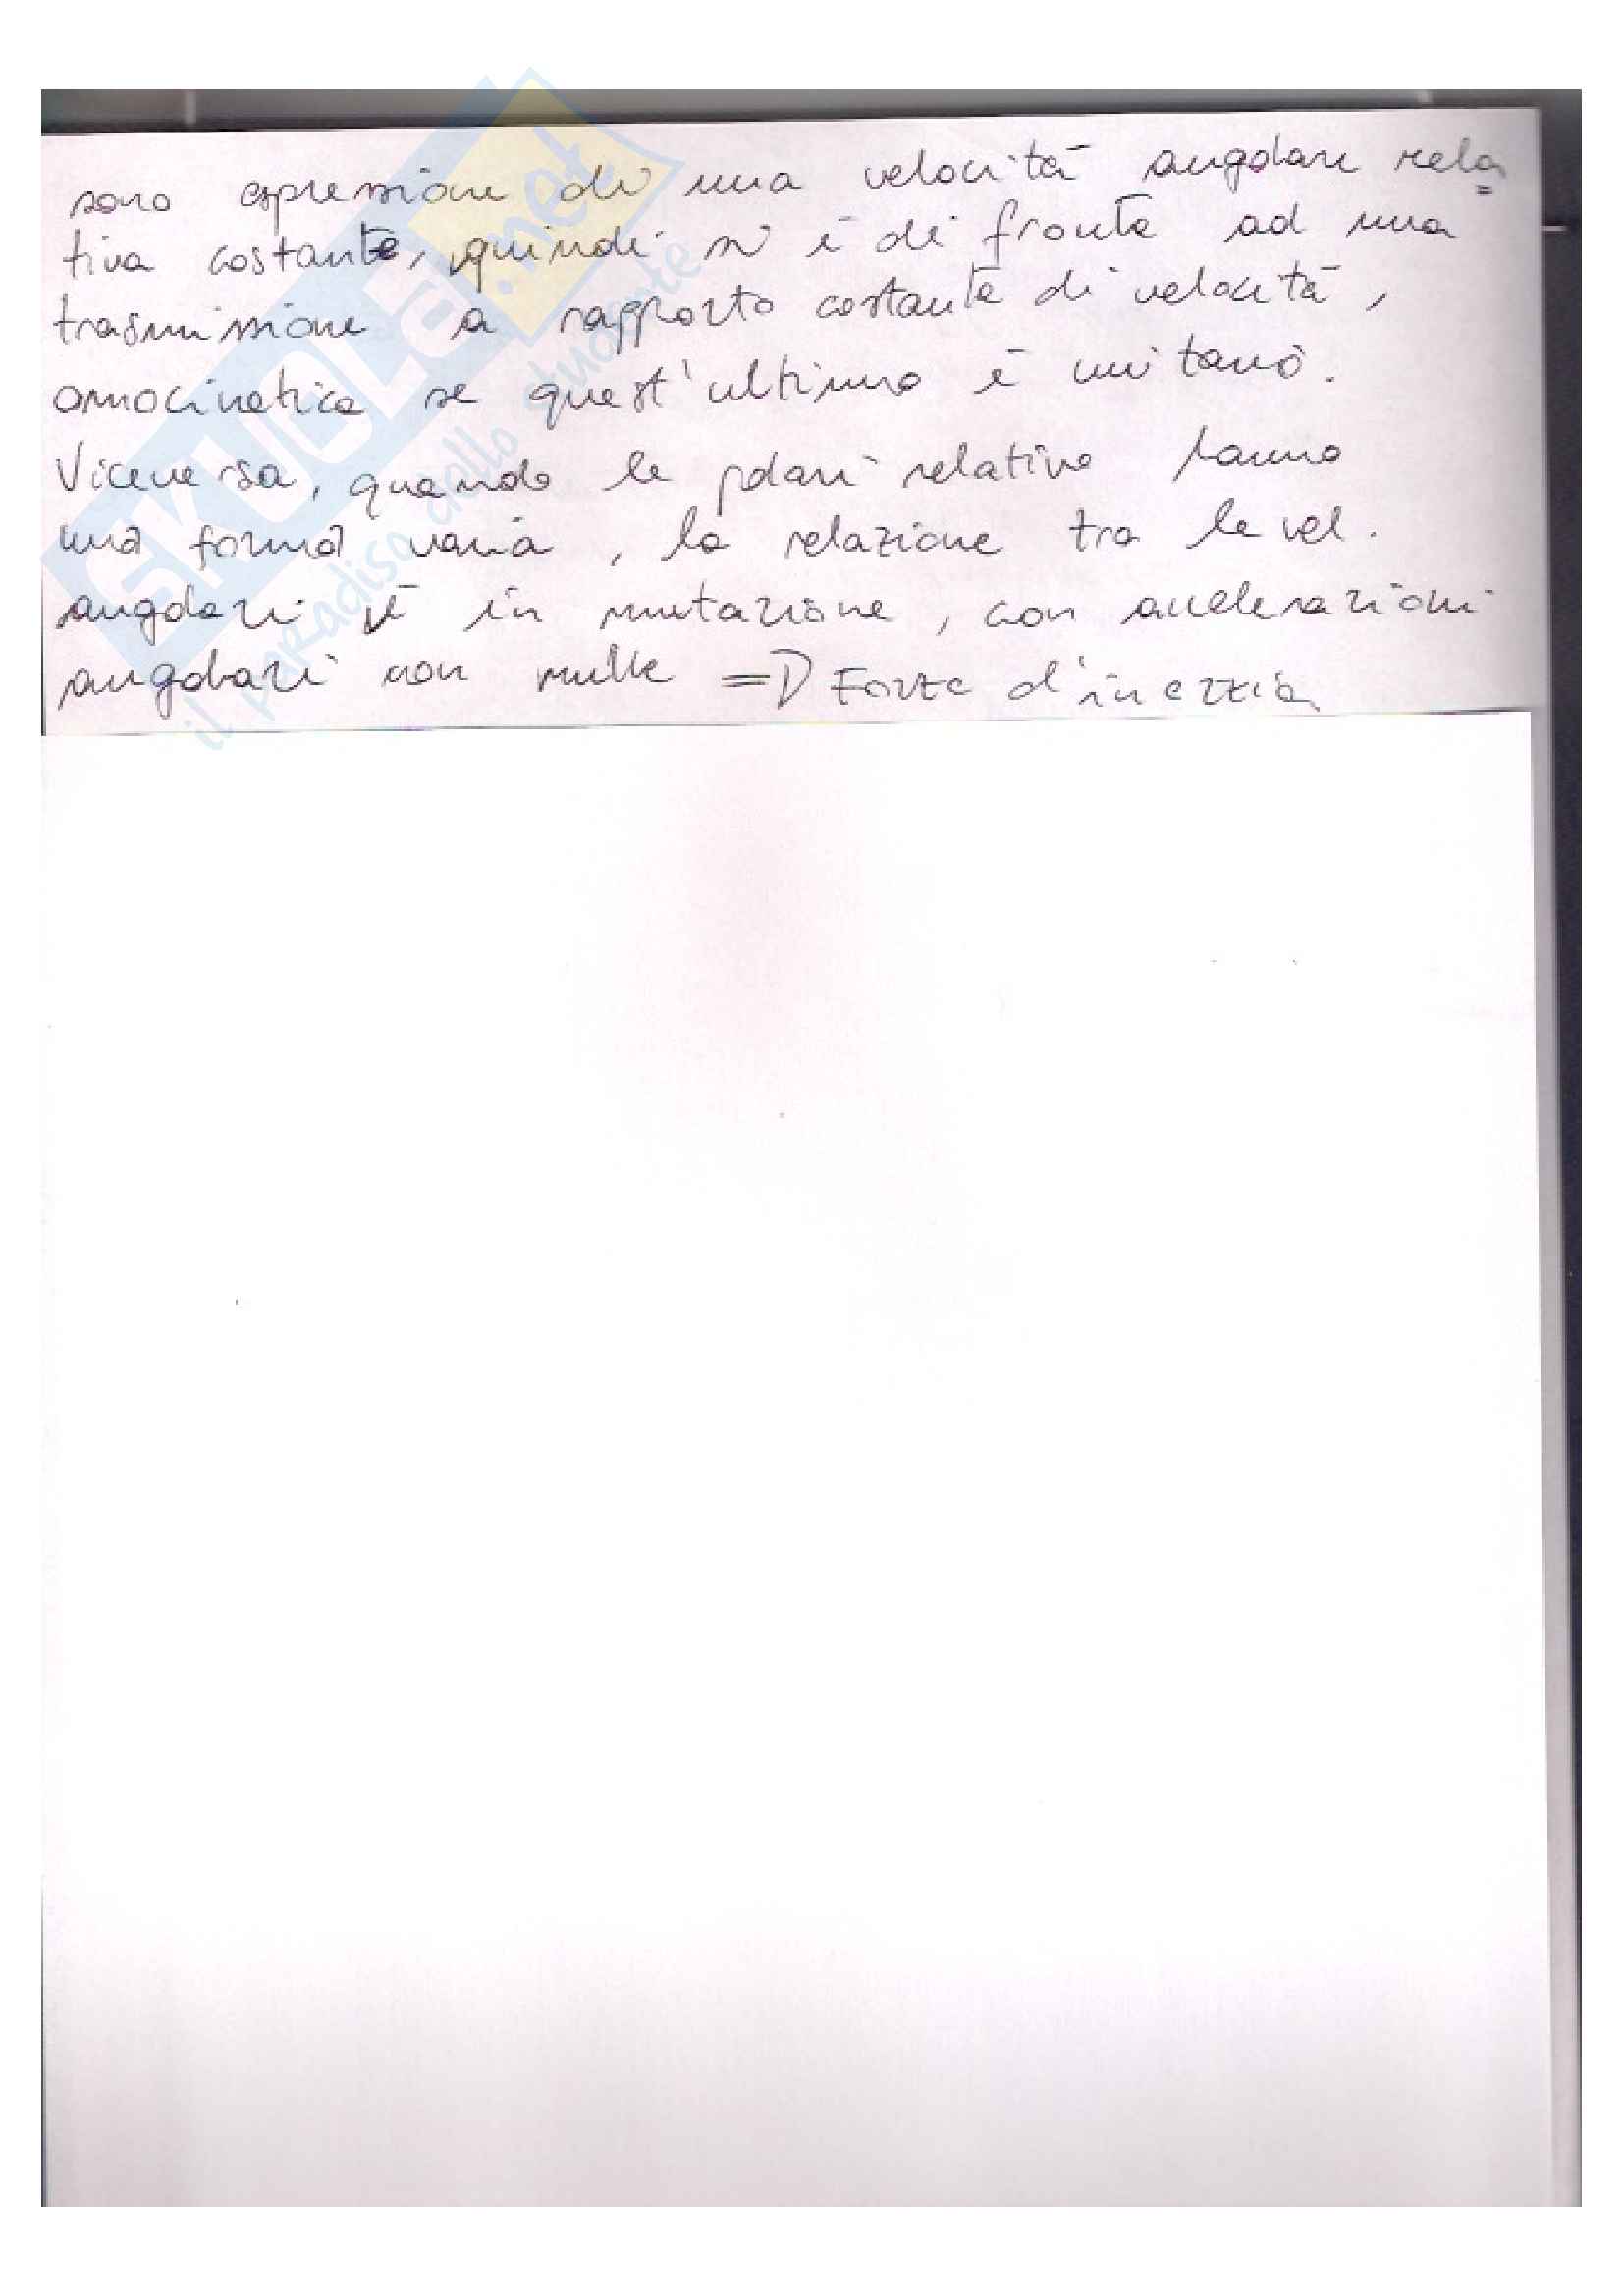 sono espressione di una velocità angolare rela=
tiva costante, quindi si è di fronte ad una
trasmissione a rapporto costante di velocità,
omocinetica se quest'ultimo è unitario.
Viceversa, quando le polari relative hanno
una forma varia, la relazione tra le vel.
angolari è in mutazione, con accelerazioni
angolari non nulle => Forze d'inerzia
SKUOLA.net
il paradiso dello studente